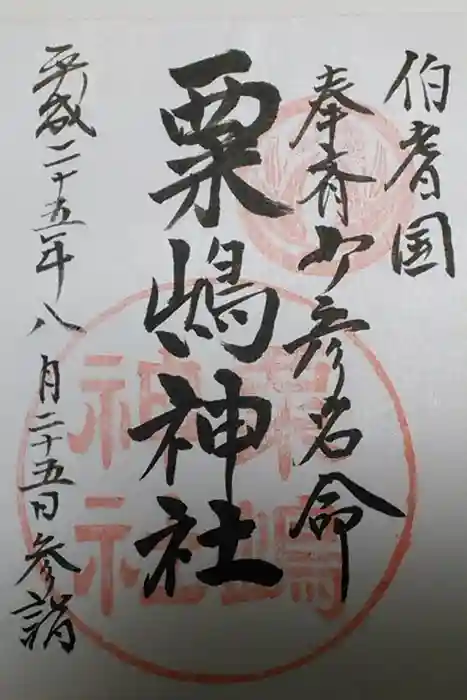 伯耆国
奉斎少彦名命
粟嶋神社
平成二十五年八月二十五日参詣
粟嶋
神社